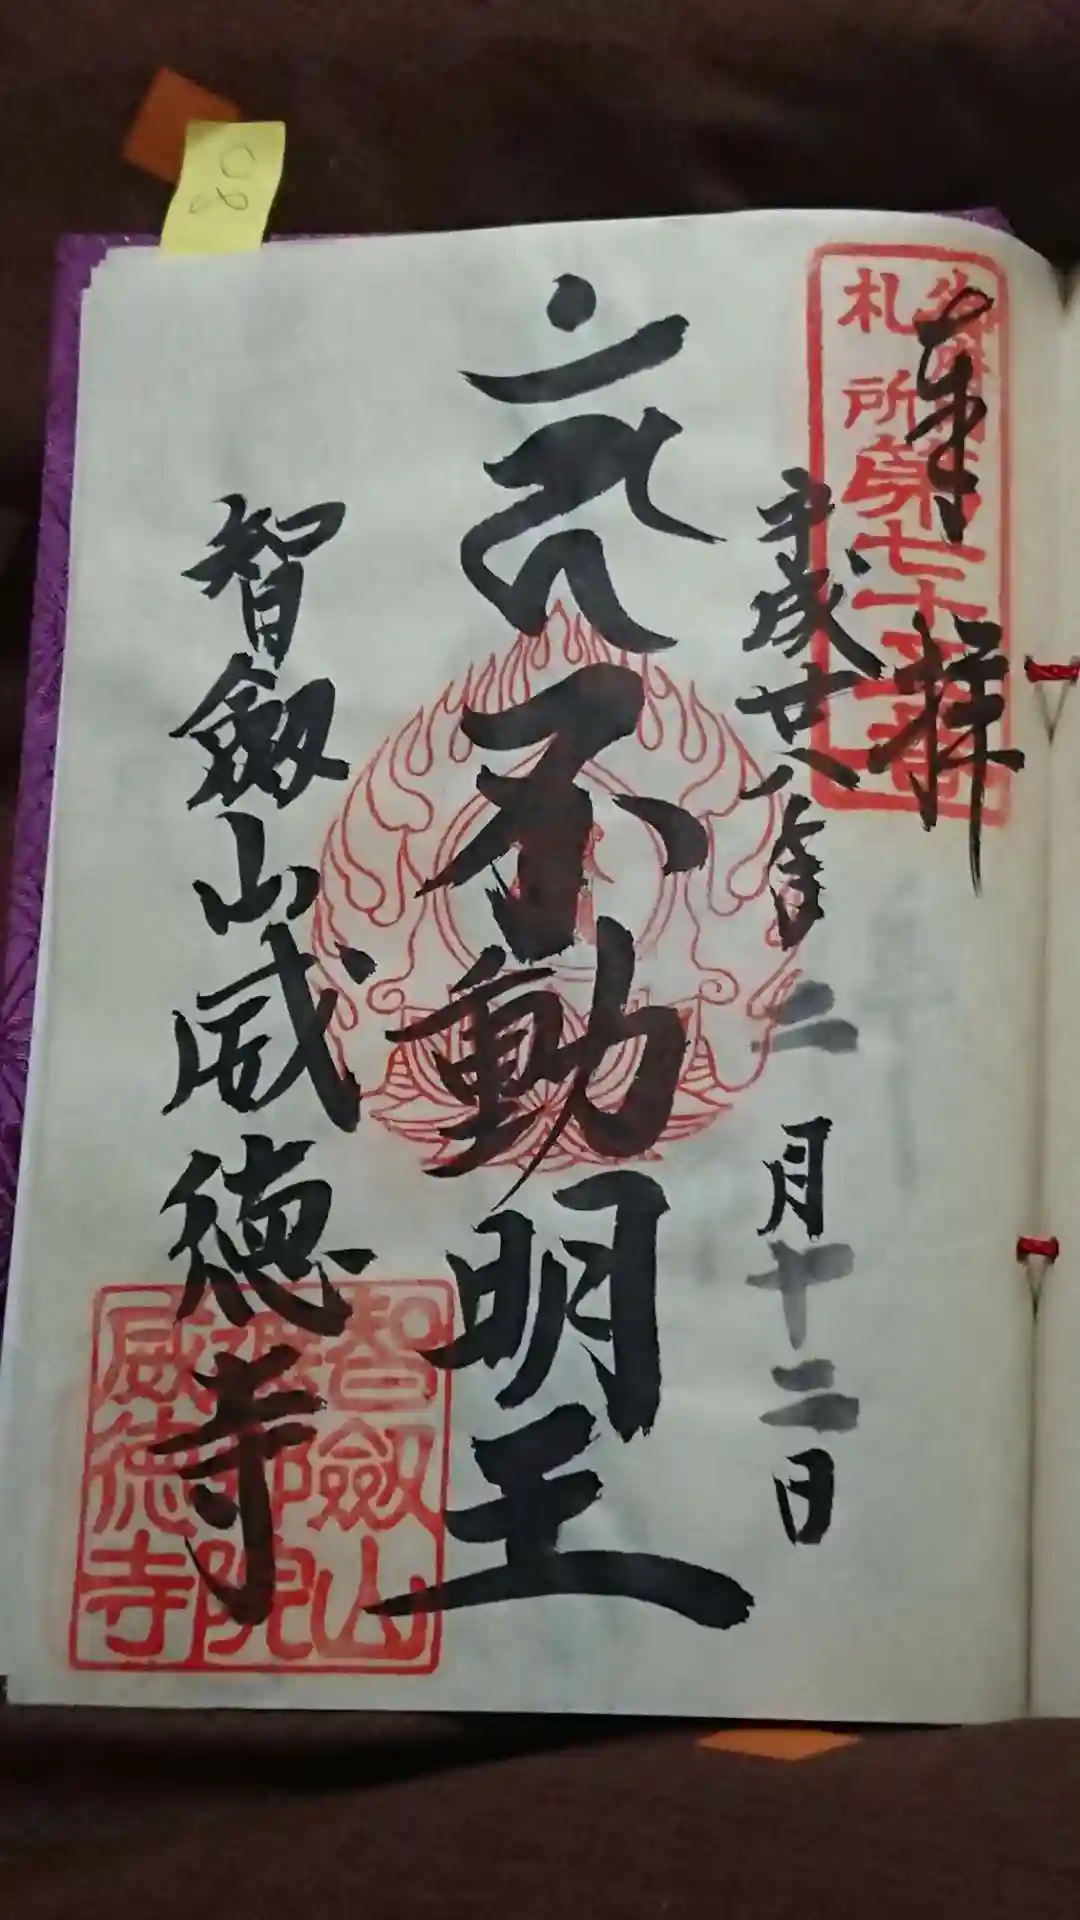 奉拝
札所第七十二番
平成廿八年二月十二日
不動明王
智劔山威徳寺
智劔山
院
威徳寺
80